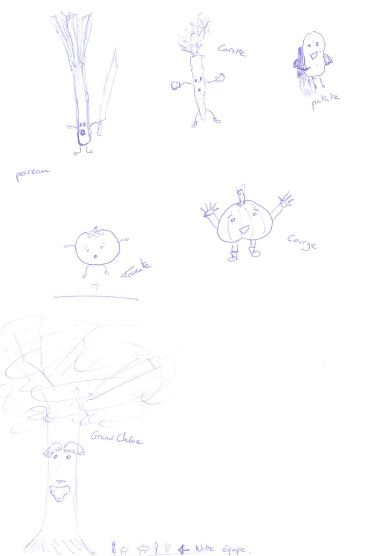 Carotte
patate
poireau
Courge
Tomate
Grand Chêne
← Notre équipe.